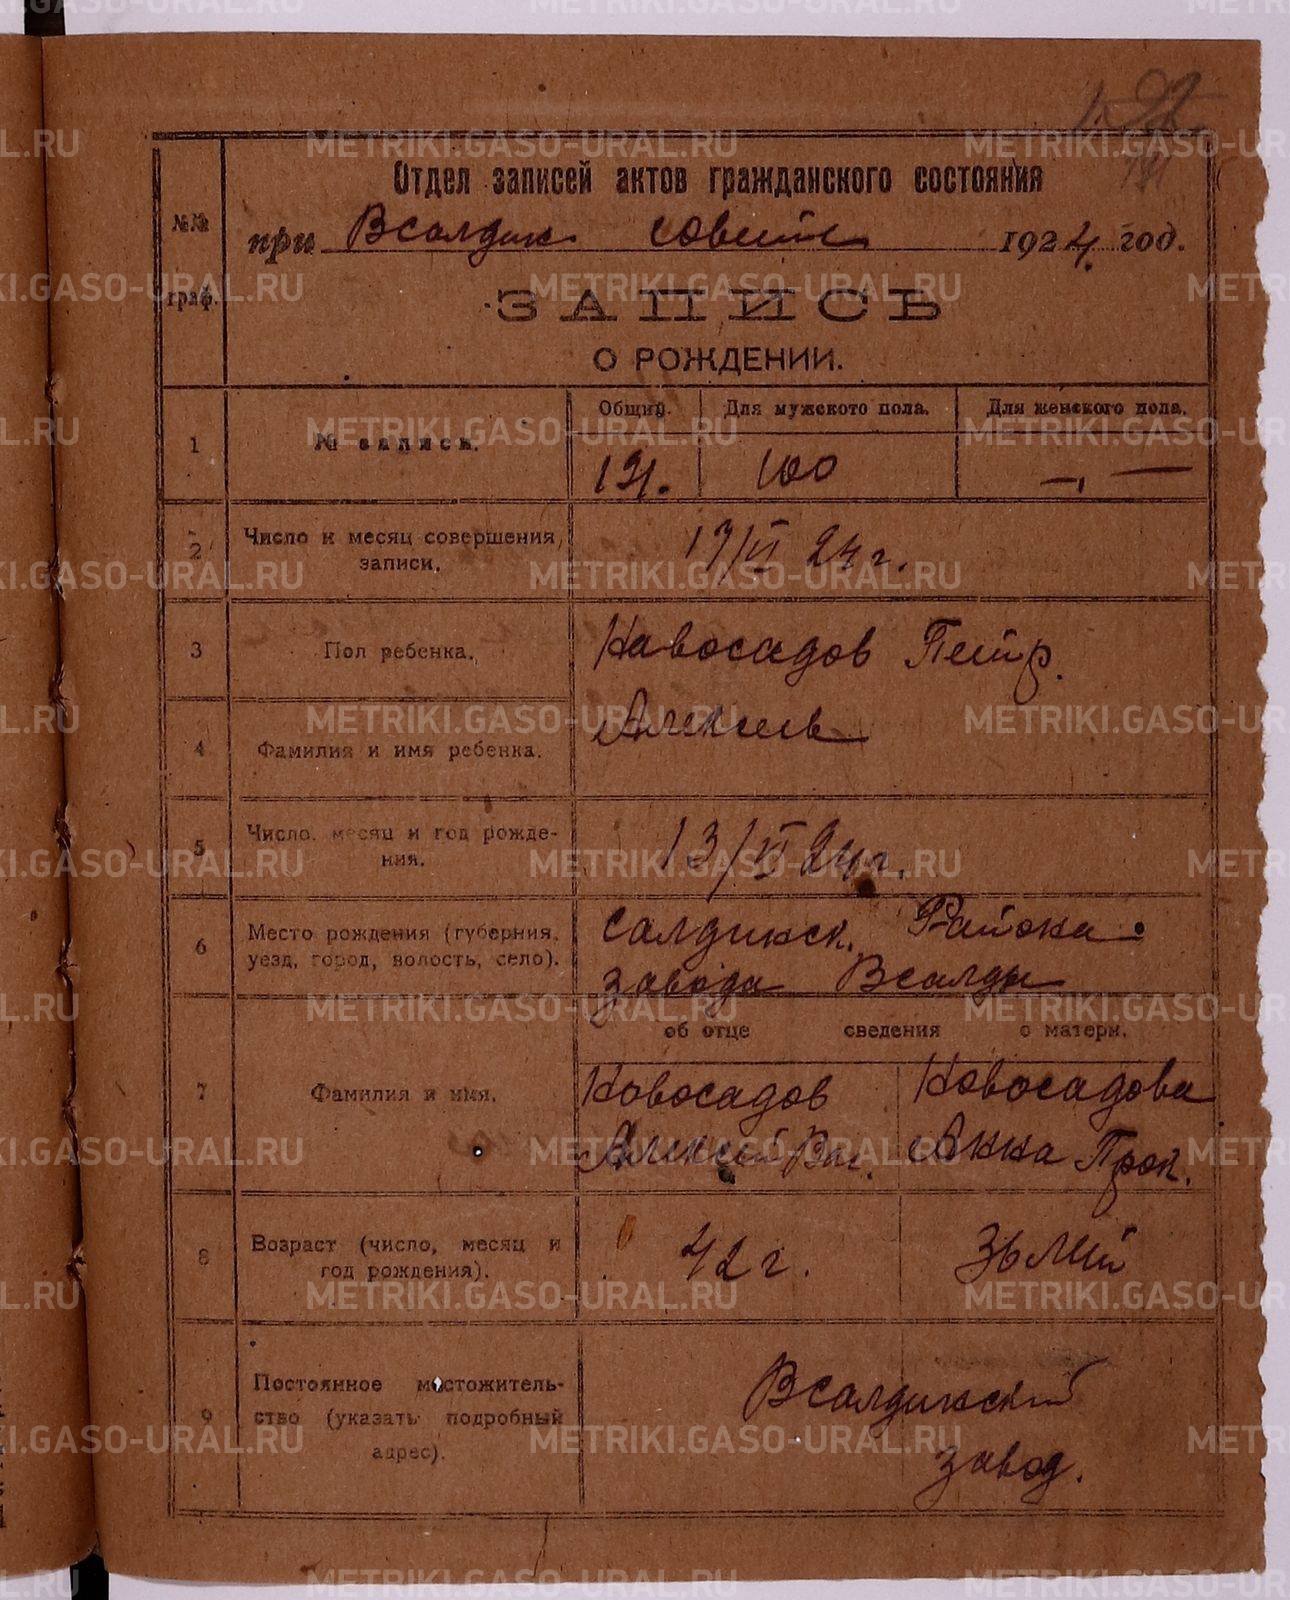 191
Отдел записей актов гражданского состояния
№№ граф.
при Всалдин. совете 1924 год.
ЗАПИСЬ
О РОЖДЕНИИ.
1 № записи. Общий. Для мужского пола. Для женского пола.
191. 100 — —
2 Число и месяц совершения записи. 17/VI 24 г.
3 Пол ребенка. Новосадов Петр.
4 Фамилия и имя ребенка. Алексеев
5 Число, месяц и год рожде-
ния. 13/VI 24 г.
6 Место рождения (губерния, Салдинск. Района
уезд, город, волость, село). завода Всалды
об отце сведения о матери.
7 Фамилия и имя. Новосадов Новосадова
Алексей Вас. Анна Прок.
8 Возраст (число, месяц и
год рождения). 42 г.
9 Постоянное местожитель-
ство (указать подробный
адрес).
Всалдинский
завод.
METRIKI.GASO-URAL.RU